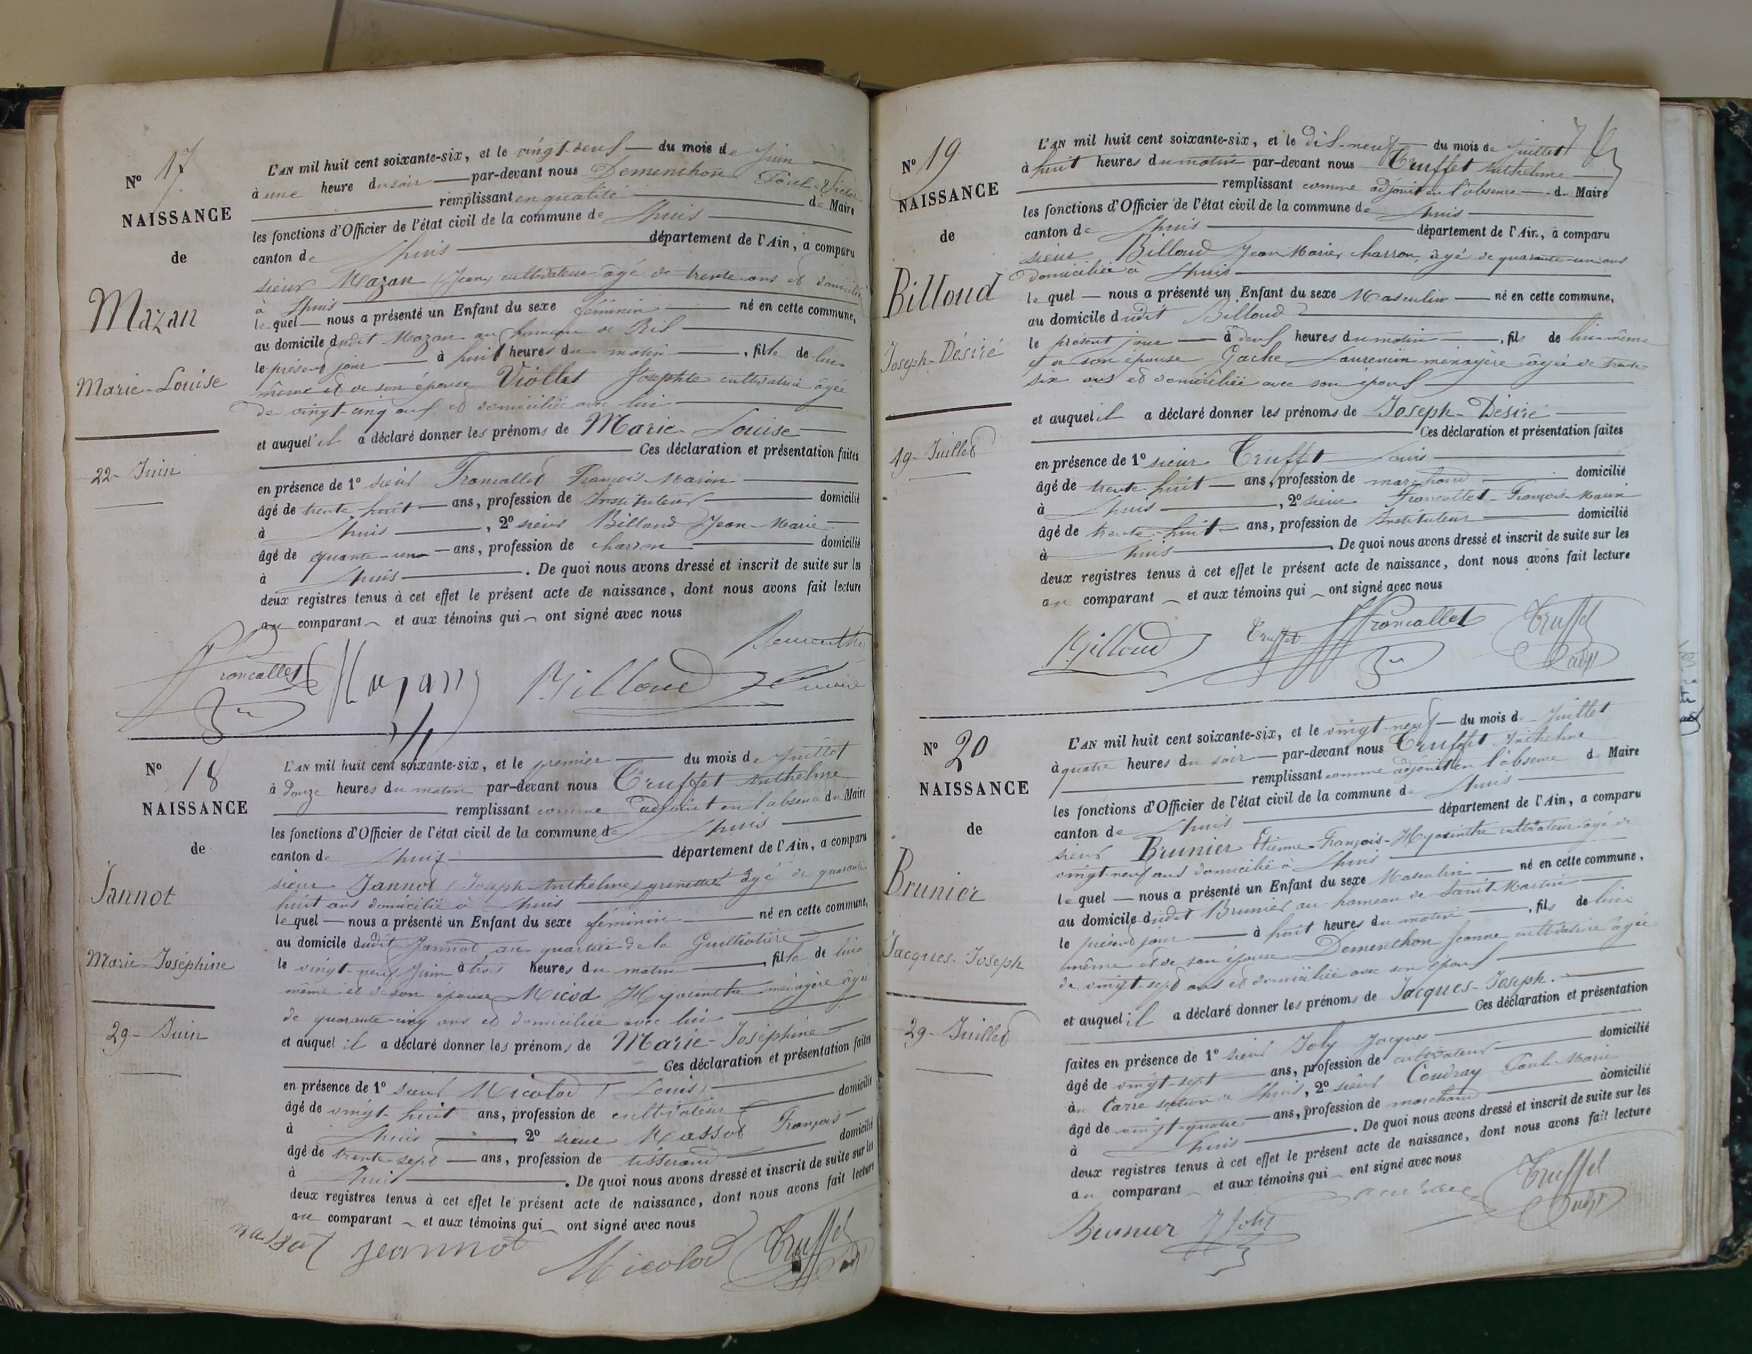 N° 17
NAISSANCE
de
Mazan
Marie-Louise
22 - Juin
L'AN mil huit cent soixante-six, et le vingt deux du mois de Juin
à une heure du soir par-devant nous Dementhon Paul-Victor
remplissant en qualité de Maire
les fonctions d'Officier de l'état civil de la commune de Lhuis
canton de Lhuis département de l'Ain, a comparu
sieur Mazan (Jean) cultivateur âgé de trente ans et domicilié
à Lhuis
lequel nous a présenté un Enfant du sexe féminin né en cette commune,
au domicile dudit Mazan au hameau de
le présent jour à huit heures du matin, fille de lui
même et de son épouse Viollet Josephte cultivatrice âgée
de vingt cinq ans et domiciliée avec lui
et auquel il a déclaré donner les prénoms de Marie-Louise
Ces déclaration et présentation faites
en présence de 1° sieur Francallet François-Marin
âgé de trente huit ans, profession de Instituteur domicilié
à Lhuis, 2° sieur Billoud Jean-Marie
âgé de quarante-un ans, profession de charron domicilié
à Lhuis. De quoi nous avons dressé et inscrit de suite sur les
deux registres tenus à cet effet le présent acte de naissance, dont nous avons fait lecture
au comparant et aux témoins qui ont signé avec nous
Francallet Mazan Billoud Dementhon
maire
N° 18
NAISSANCE
de
Jannot
Marie-Joséphine
29 - Juin
L'AN mil huit cent soixante-six, et le premier du mois de Juillet
à douze heures du matin par-devant nous Truffet Anthelme
remplissant comme adjoint en l'absence du Maire
les fonctions d'Officier de l'état civil de la commune de Lhuis
canton de Lhuis département de l'Ain, a comparu
sieur Jannot (Joseph-Anthelme) âgé de quarante
huit ans domicilié à Lhuis
lequel nous a présenté un Enfant du sexe féminin né en cette commune,
au domicile dudit Jannot au quartier de la Guillotière
le vingt-neuf Juin à trois heures du matin, fille de lui
même et de son épouse Micod Hyacinthe ménagère âgée
de quarante-cinq ans et domiciliée avec lui
et auquel il a déclaré donner les prénoms de Marie-Joséphine
Ces déclaration et présentation faites
en présence de 1° sieur Micolod (Louis)
âgé de vingt huit ans, profession de cultivateur domicilié
à Lhuis, 2° sieur Massot François
âgé de trente-sept ans, profession de tisserand domicilié
à Lhuis. De quoi nous avons dressé et inscrit de suite sur les
deux registres tenus à cet effet le présent acte de naissance, dont nous avons fait lecture
au comparant et aux témoins qui ont signé avec nous
massot jeannot Micolod Truffet
adjt
N° 19
NAISSANCE
de
Billoud
Joseph-Désiré
19 - Juillet
L'AN mil huit cent soixante-six, et le dix-neuf du mois de Juillet
à huit heures du matin par-devant nous Truffet Anthelme
remplissant comme adjoint en l'absence du Maire
les fonctions d'Officier de l'état civil de la commune de Lhuis
canton de Lhuis département de l'Ain, a comparu
sieur Billoud Jean Marie charron, âgé de quarante-un ans
domicilié à Lhuis
lequel nous a présenté un Enfant du sexe Masculin né en cette commune,
au domicile dudit Billoud
le présent jour à deux heures du matin, fils de lui-même
et de son épouse Gache Laurence ménagère âgée de trente
six ans et domiciliée avec son époux
et auquel il a déclaré donner les prénoms de Joseph-Désiré
Ces déclaration et présentation faites
en présence de 1° sieur Truffet Louis
âgé de trente huit ans, profession de marchand domicilié
à Lhuis, 2° sieur Francallet François-Marin
âgé de trente-huit ans, profession de Instituteur domicilié
à Lhuis. De quoi nous avons dressé et inscrit de suite sur les
deux registres tenus à cet effet le présent acte de naissance, dont nous avons fait lecture
au comparant et aux témoins qui ont signé avec nous
Billoud Truffet Francallet Truffet
adjt
N° 20
NAISSANCE
de
Brunier
Jacques-Joseph
29 - Juillet
L'AN mil huit cent soixante-six, et le vingt-neuf du mois de Juillet
à quatre heures du soir par-devant nous Truffet Anthelme
remplissant comme adjoint en l'absence du Maire
les fonctions d'Officier de l'état civil de la commune de Lhuis
canton de Lhuis département de l'Ain, a comparu
sieur Brunier Etienne-François-Hyacinthe cultivateur âgé de
vingt-neuf ans domicilié à Lhuis
lequel nous a présenté un Enfant du sexe Masculin né en cette commune,
au domicile dudit Brunier au hameau de Saint-Martin
le présent jour à huit heures du matin, fils de lui
même et de son épouse Dementhon Jeanne cultivatrice âgée
de vingt-sept ans et domiciliée avec son époux
et auquel il a déclaré donner les prénoms de Jacques-Joseph.
Ces déclaration et présentation
faites en présence de 1° sieur Joly Jacques
âgé de vingt-sept ans, profession de cultivateur domicilié
à Lhuis, 2° sieur Coudray Paul-Marie
âgé de vingt-quatre ans, profession de marchand domicilié
à Lhuis. De quoi nous avons dressé et inscrit de suite sur les
deux registres tenus à cet effet le présent acte de naissance, dont nous avons fait lecture
au comparant et aux témoins qui ont signé avec nous
Brunier J Joly Truffet
adjt